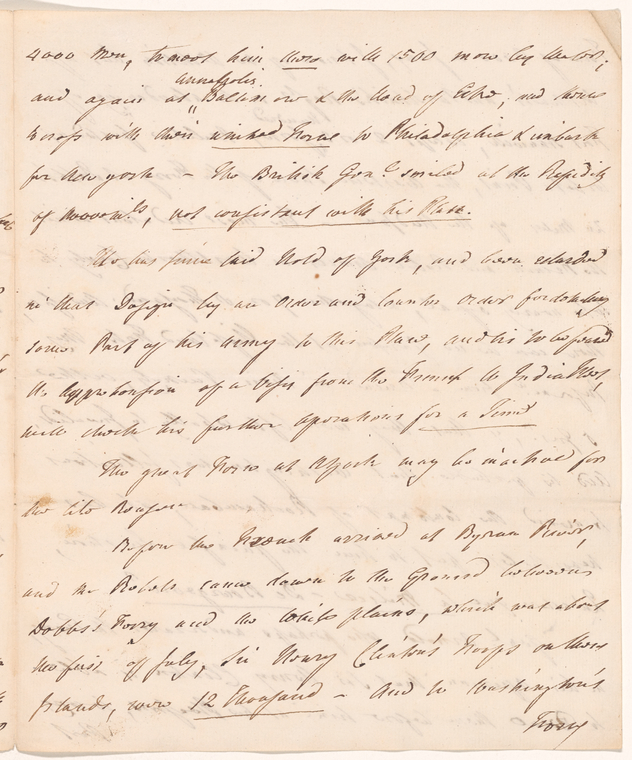 4000 Men, to meet him there with 1500 more by Water;
Annapolis
and again at Baltim ore & the Head of Elke; and thence
to cross with their united Force to Philadelphia & embark
for New york – The British Genl. smiled at the Rapidity
of Movemts., not consistant with his Plan.
He has since laid Hold of York, and been
in that Design by an Order and Counter Order for
some Part of his Army to this Place, and it is to be feared
the Apprehension of a Visit from the French West India Fleet,
will check his further operations for a Time
The great Force at York may be inactive for
the like Reason
Before the French arrived at Byram River,
and the Rebels came down to the Ground between
Dobbs's Ferry and the White plains, which was about
the first of July, Sir Henry Clinton's Troops on these
Islands, were 12 Thousand – And to Washington's